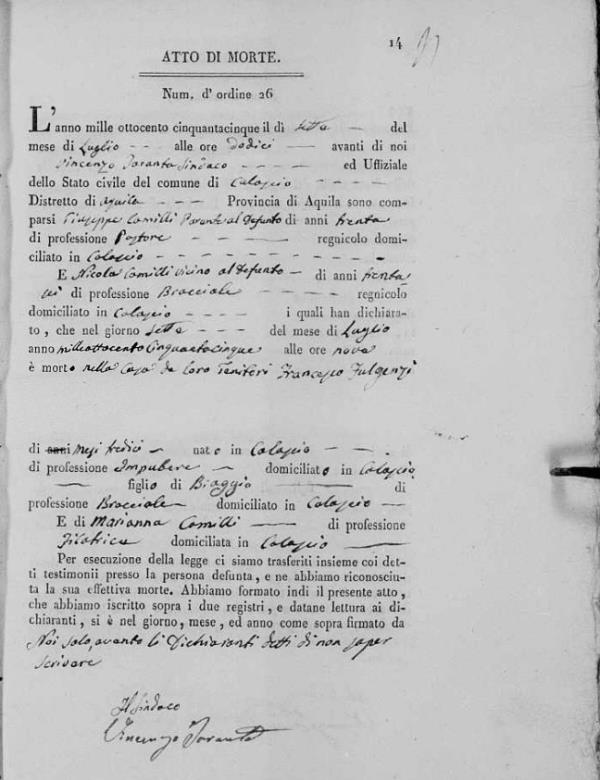 14
ATTO DI MORTE.
Num. d' ordine 26
L'anno mille ottocento cinquantacinque il dì sette — del
mese di Luglio - - alle ore dodici — avanti di noi
Vincenzo Taranta Sindaco - - - - ed Uffiziale
dello Stato civile del comune di Calascio - - - -
Distretto di Aquila - - Provincia di Aquila sono com-
parsi Giuseppe Camilli Parente al Defunto di anni trenta
di professione Pastore - - - - regnicolo domi-
ciliato in Calascio - - - - - - - - - -
E Nicola Camilli vicino al Defunto - di anni trenta
sei di professione Bracciale - - - - - regnicolo
domiciliato in Calascio - - - - i quali han dichiara-
to, che nel giorno sette - - - del mese di Luglio
anno milleottocento cinquantacinque alle ore nove
è morto nella casa de loro Genitori Francesco Fulgenzi
di anni mesi tredici - nato in Calascio - - -
di professione Impubere - domiciliato in Calascio
— figlio di Biaggio — di
professione Bracciale domiciliato in Calascio —
E di Marianna Camilli — di professione
Filatrice domiciliata in Calascio —
Per esecuzione della legge ci siamo trasferiti insieme coi det-
ti testimonii presso la persona defunta, e ne abbiamo riconosciu-
ta la sua effettiva morte. Abbiamo formato indi il presente atto,
che abbiamo iscritto sopra i due registri, e datane lettura ai di-
chiaranti, si è nel giorno, mese, ed anno come sopra firmato da
Noi solo, avendo li Dichiaranti detti di non saper
scrivere
Il Sindaco
Vincenzo Taranta